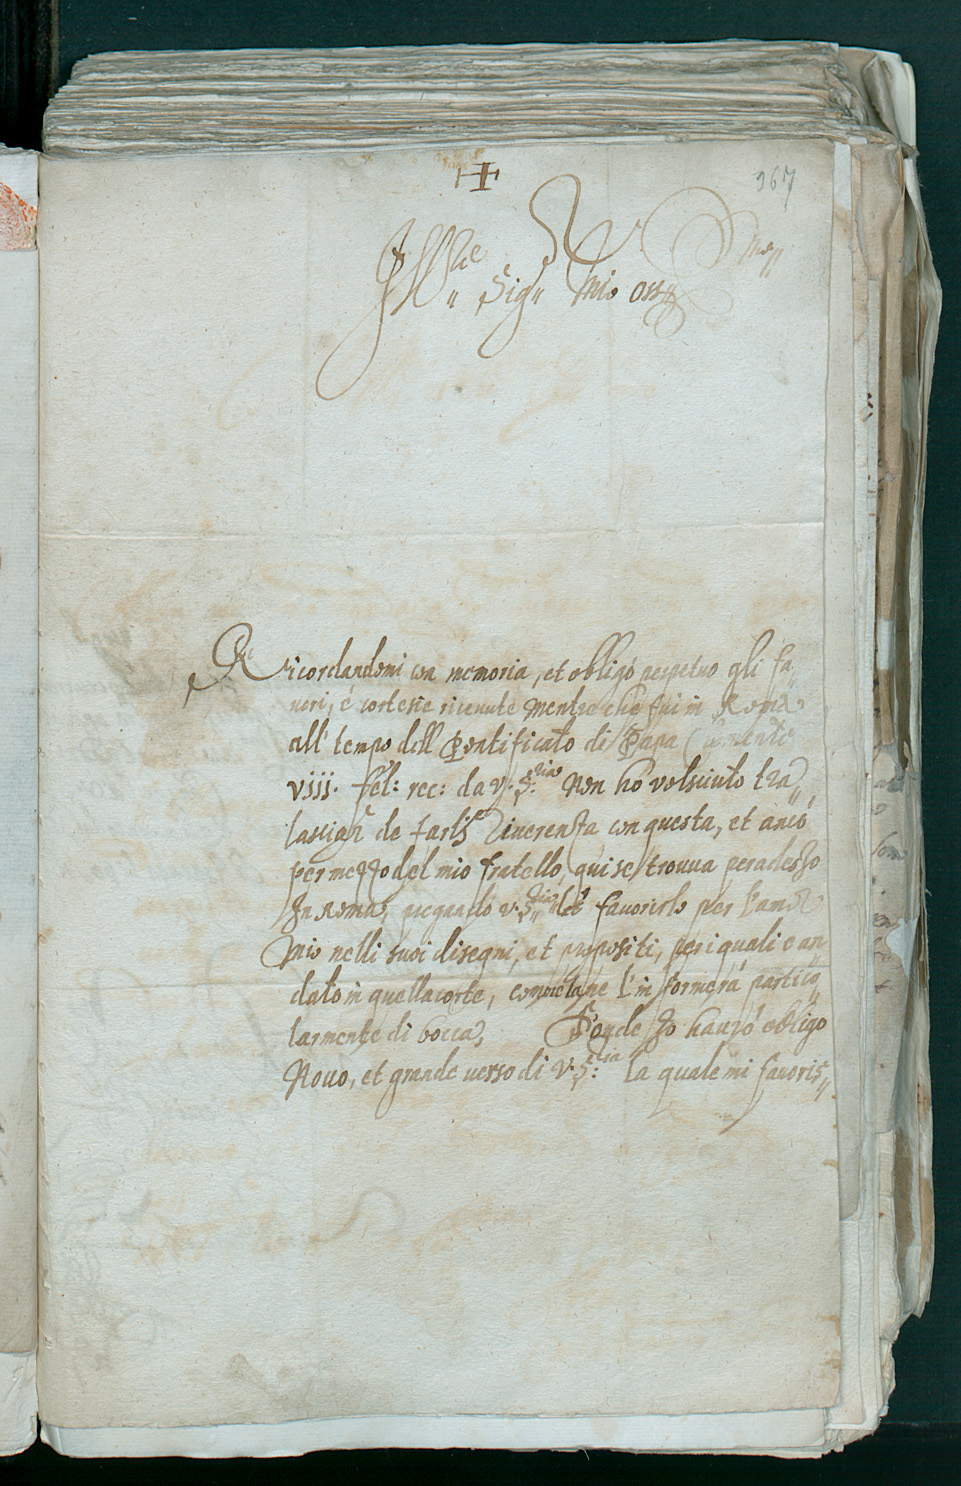 367
Ill.re Sig.r Mio oss.mo
Ricordandomi con memoria, et obligo perpetuo gli fa„
uori, e cortesie riceuute mentre che fui in Roma
all' tempo dell Pontificato di Papa Clemente
viij. fel: rec: da V.S.ria Non ho volsciuto tra„
lasciar de farli riuerenza con questa, et anco
per mezzo del mio fratello, qui se trouua per adesso
In Roma, pregando V.S.ria
favorirlo per
Mio nelli suoi disegni, et propositi, per i quali e an„
dato in quella corte, l'in formerà partico„
larmente di bocca, D'onde Io hauerò obligo
Nouo, et grande uerso di V.S.ria la quale mi fauoris„